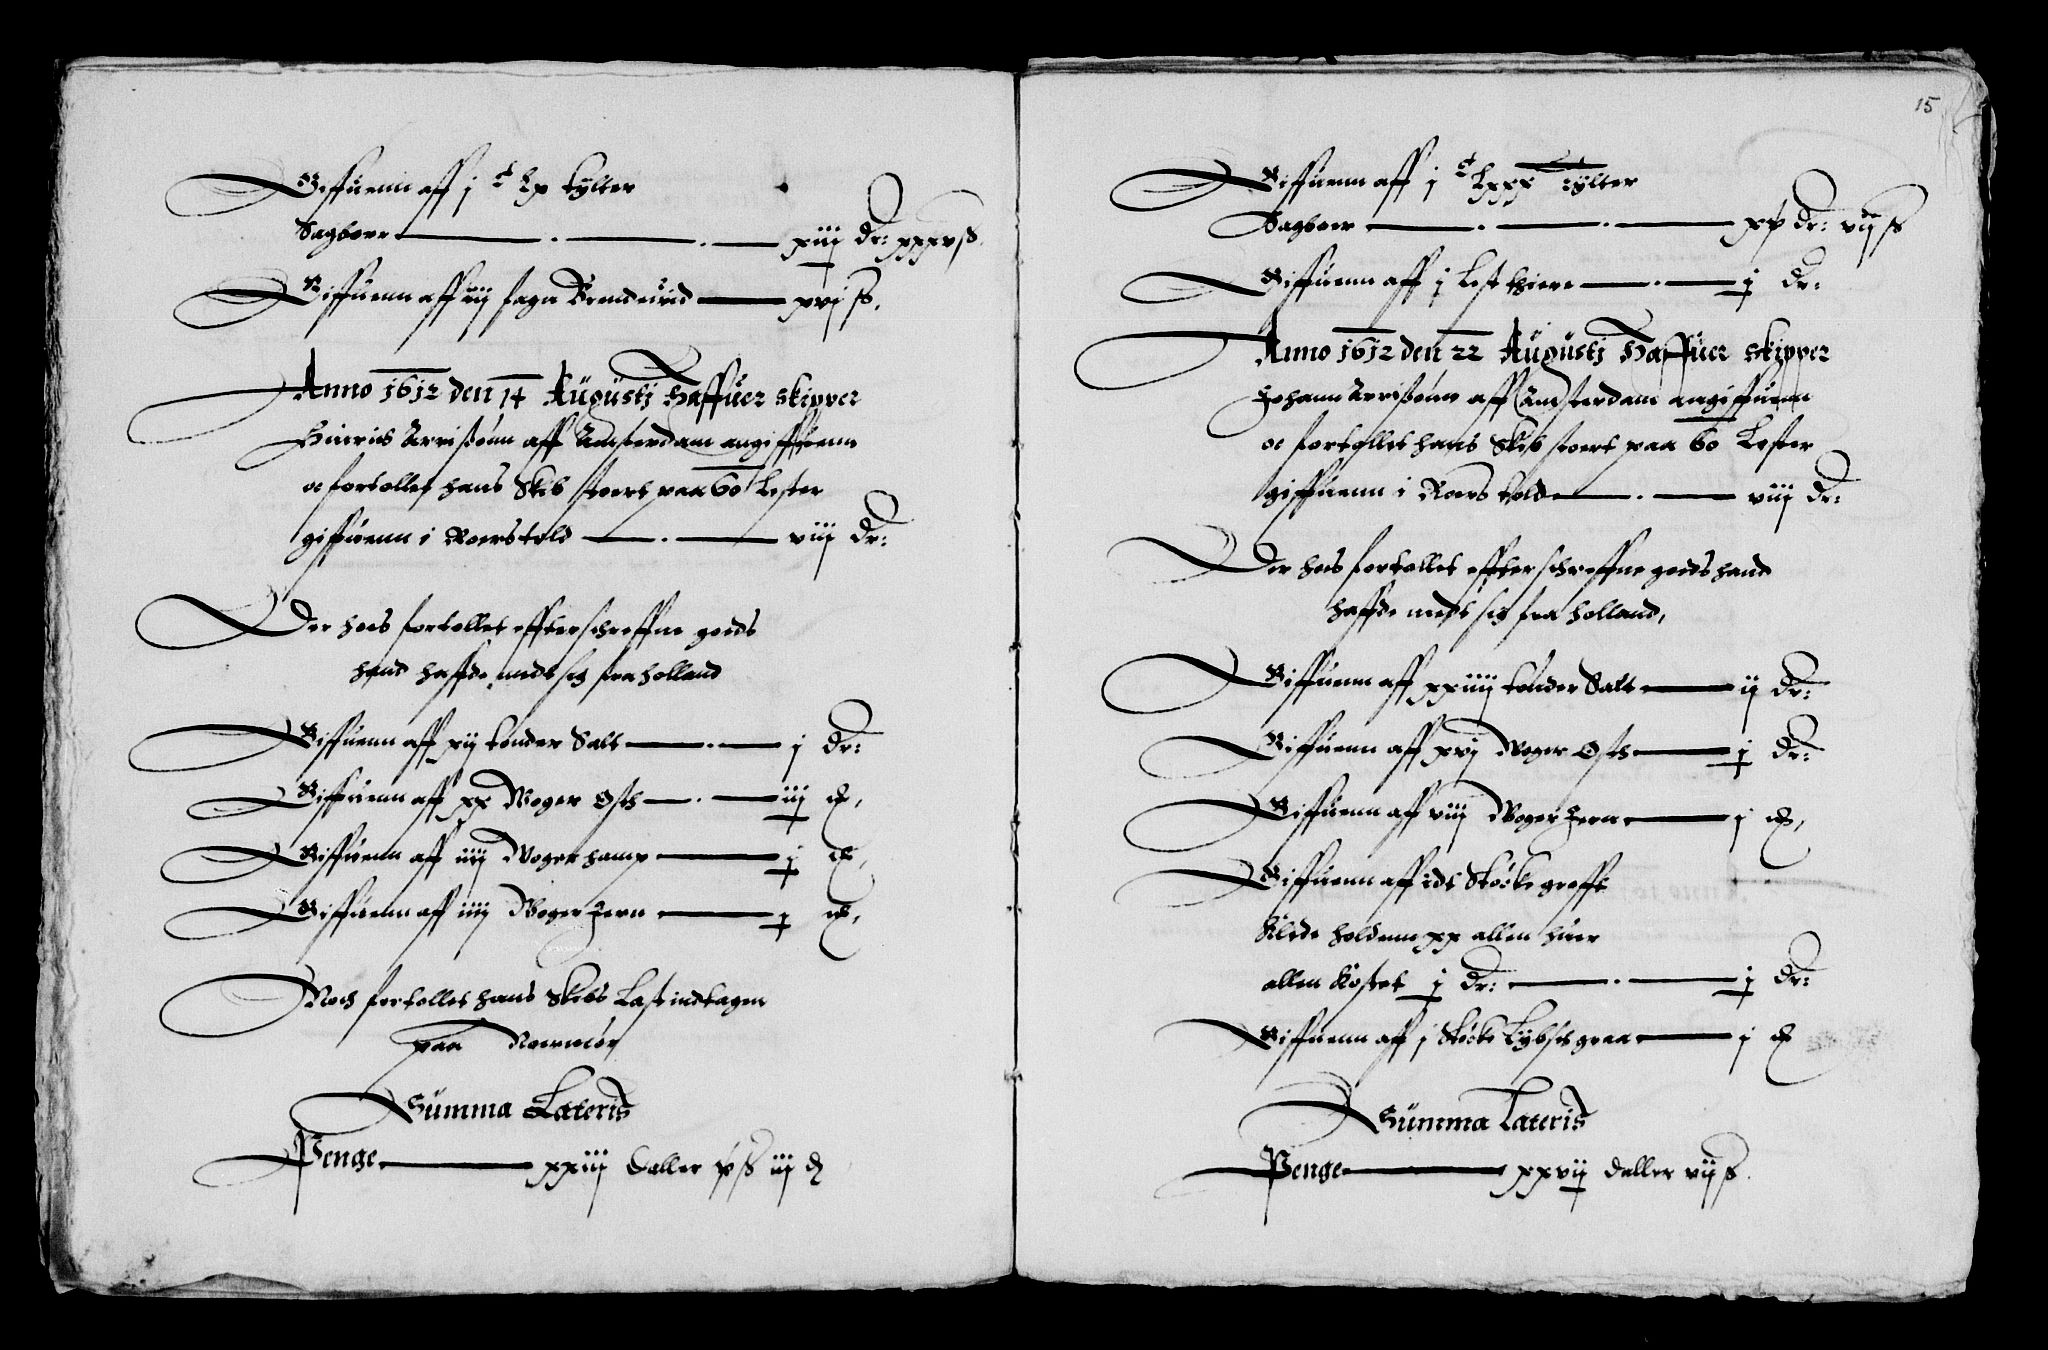 Giffuenn aff j c Lx tylter
Sagboer xiij dr: xxxv ß
Giffuenn aff iij fagn Brendeved xvj ß.
Anno 1612 den 14 Augustj Haffuer skipper
Hinrich Arrißönn aff Amsterdam angiffuenn
oc fortollet hans Skib stoert paa 60 Lester
giffuenn i Roerstold viij dr:
Der hos fortollet effterschreffne goeds
hand haffde medt sig fra Holland
Giffuenn aff xij tönder Salt j dr:
Giffuenn aff xx Woger Osth iij
Giffuenn aff iiij Woger hamp j
Giffuenn aff iiij Woger Jern
Noch fortollet hans Skibs Last indtagen
paa Noermör
Summa Lateris
Penge xxiij daller ß iij
15
Giffuenn aff j c Lxxx tylter
Sagboer xv dr: vij ß
Giffuenn aff j Lest thiere j dr:
Anno 1612 den 22 Augustj Haffuer skipper
Johann Arrißönn aff Amsterdam angiffuenn
oc fortollet hans Skib stoert paa 60 Lester
giffuenn i Roers told viij dr:
Der hos fortollet effterschreffne goeds hand
haffde medt sig fra Holland,
Giffuenn aff xxiiij tönder Salt ij dr:
Giffuenn aff xvj Woger Osth j dr:
Giffuenn aff viij Woger Jern j
Giffuenn aff idt Stöcke grofft
Klede holdenn xx allen huer
allen kostet j dr: j dr:
Giffuenn aff j Stöcke Lybsch graa j
Summa Lateris
Penge xxvij daller vij ß